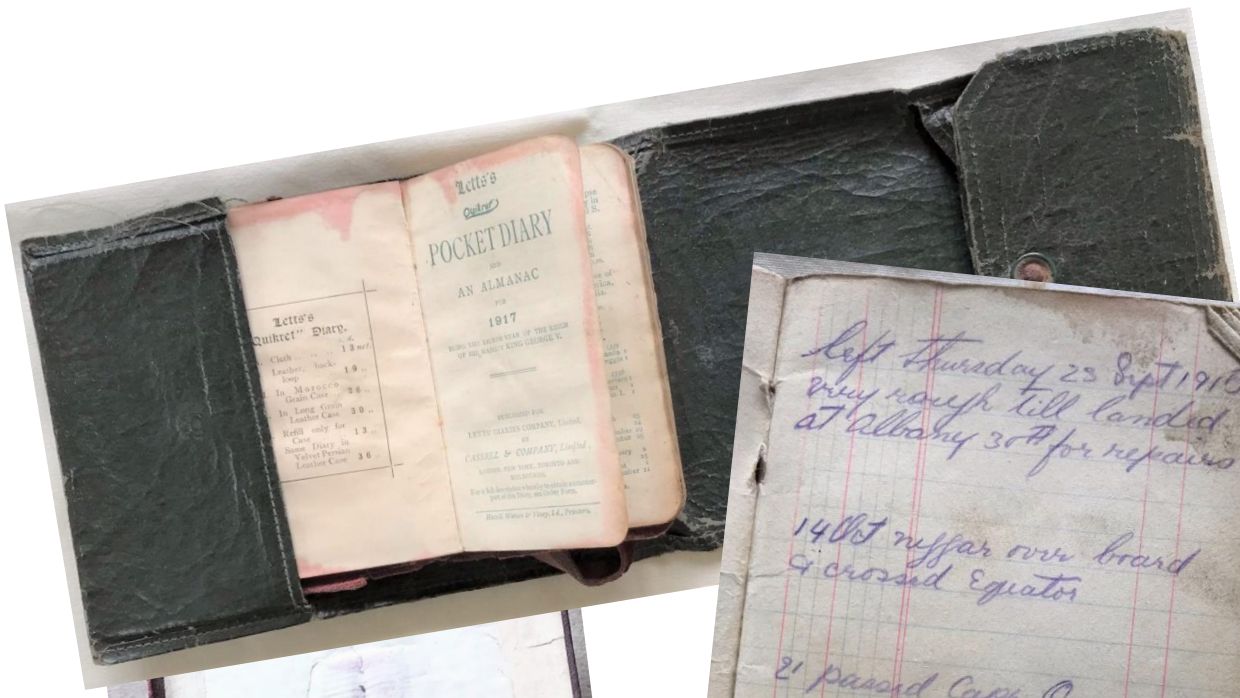 Letts's
"Quikret" Diary.
s. d.
Cloth .. .. .. 1 3 net.
Leather, back-
loop 1 9 ..
In Morocco
Grain Case 2 6 ..
In Long Grain
Leather Case 3 0 ..
Refill only for
Case 1 3 ..
Same Diary in
Velvet Persian
Leather Case 3 6 ..
Letts's
Quikref
POCKET DIARY
AND
AN ALMANAC
FOR
1917
BEING THE EIGHTH YEAR OF THE REIGN
OF HIS MAJESTY KING GEORGE V.
PUBLISHED FOR
LETTS DIARIES COMPANY, Limited,
BY
CASSELL & COMPANY, Limited,
LONDON, NEW YORK, TORONTO AND
MELBOURNE.
left Thursday 23 Sept 1915
very rough till landed
at Albany 30th for repairs
14 Oct niggar over board
& crossed Equator
21 passed Cape